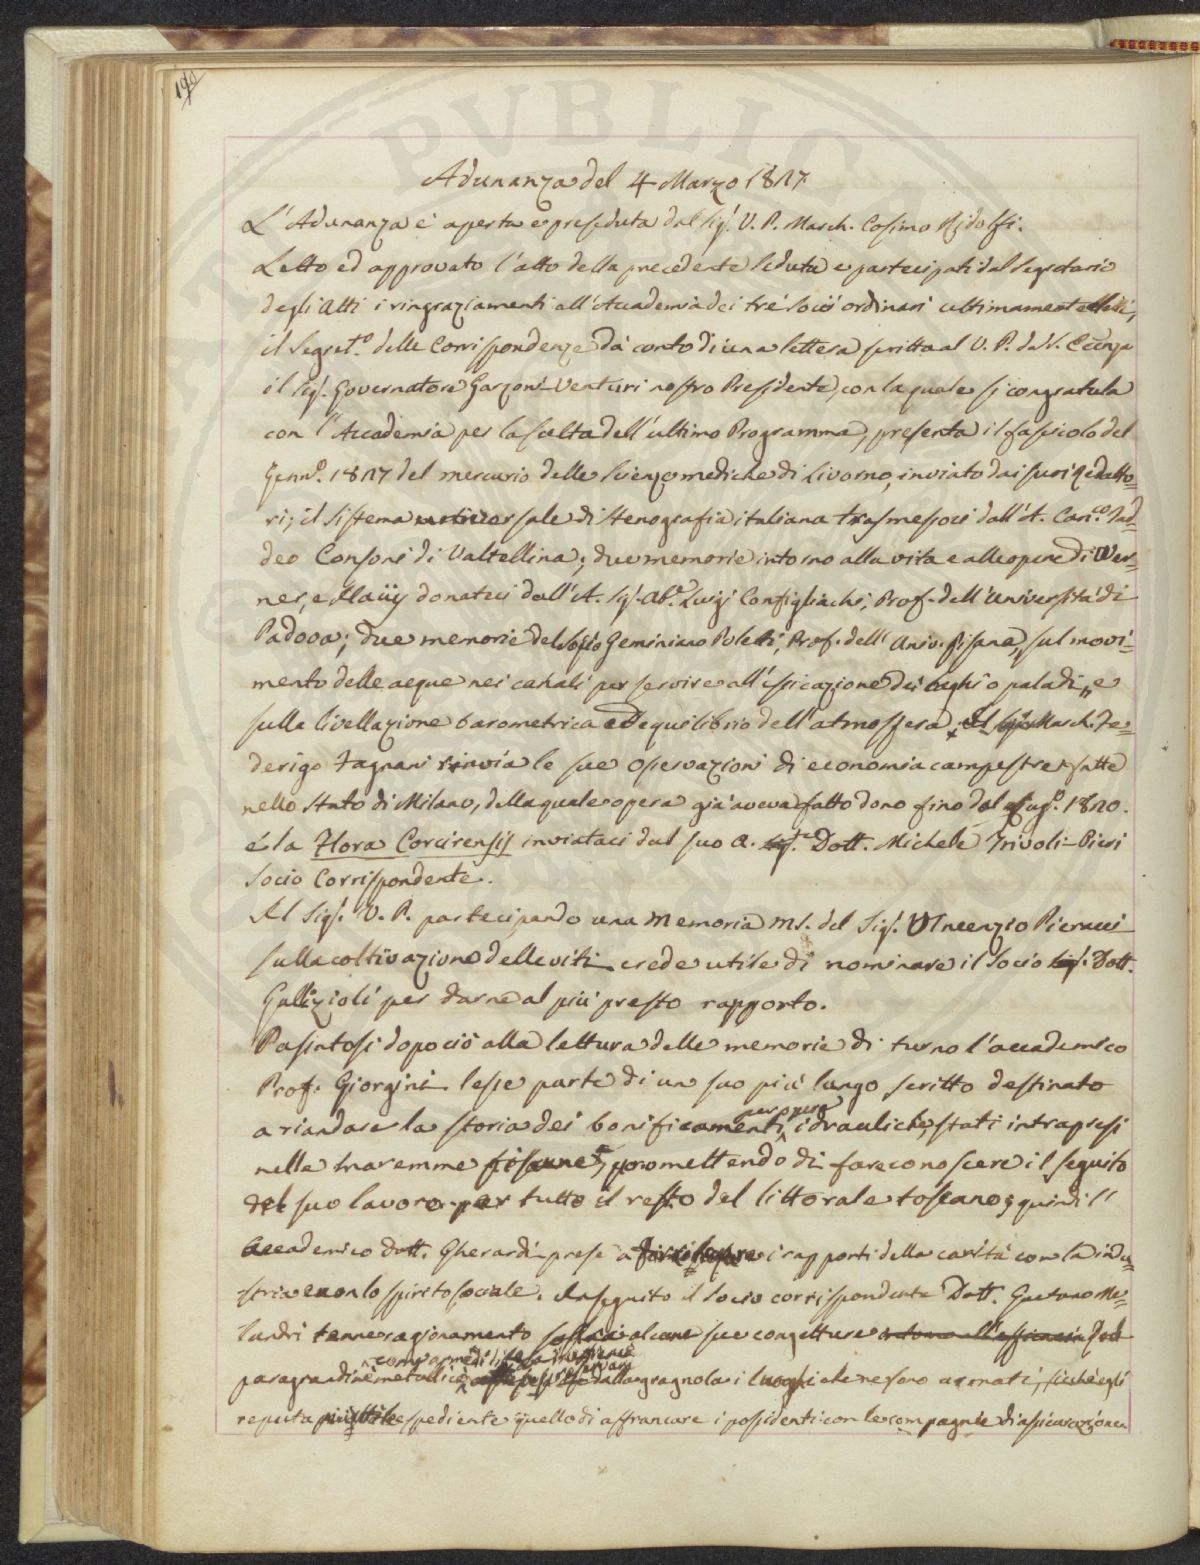 190
Adunanza del 4 Marzo 1827
L'Adunanza è aperta e preseduta dal Sig.r V. P. March. Cosimo Ridolfi.
Letto ed approvato l'atto della precedente seduta e partecipati dal Segretario
degli Atti i ringraziamenti all'Accademia dei tré socii ordinari ultimamente eletti,
il Segret.o delle Corrispondenze dà conto di una lettera scritta al V. P. da S. Eccnza
il Sig. Governatore Garzoni Venturi nostro Presidente, con la quale si congratula
con l'Accademia per la scelta dell'ultimo Programma, presenta il fascicolo del
Genn.o 1827 del mercurio delle scienze mediche di Livorno, inviato dai suoi Redatto=
ri; il Sistema universale di Stenografia italiana trasmessoci dall'A. Can.co Tad=
deo Consoni di Valtellina; due memorie intorno alla vita e alle opere di Wer=
ner, e Haüy donateci dall'A. Sig. Ab.e Luigi Configliachi, Prof. dell'Università di
Padova; due memorie del Socio Geminiano Poletti, Prof. dell'Univ. Pisana, sul movi=
mento delle acque nei canali per servire all'essicazione dei laghi o paludi,, e
sulla livellazione barometrica ed equilibrio dell'atmosfera. Il Sig. March. Fe=
derigo Fagnani rinvia le sue osservazioni di economia campestre fatte
nello Stato di Milano, della quale opera già aveva fatto dono fino dal 1820.
é la Flora Corcirensis inviataci dal suo A. Sig.re Dott. Michele Trivoli-Pieri
Socio Corrispondente.
Il Sig.r V. P. partecipando una Memoria ms. del Sig.r Vincenzio Pieracci
sulla coltivazione delle viti crede utile di nominare il Socio Sig. Dott.
Gallizioli per darne al più presto rapporto.
Passatosi dopo ciò alla lettura delle memorie di turno l'accademico
Prof. Giorgini lesse parte di un suo più lungo scritto destinato
per opere
a riandare la storia dei bonificamenti idrauliche, stati intrapresi
nelle maremme pisane, promettendo di fare conoscere il seguito
del suo lavoro per tutto il resto del littorale toscano; quindi l'
Accademico Dott. Gherardi prese a i rapporti della carità con la indu=
stria e con lo spirito sociale. In seguito il Socio corrispondente Dott. Gaetano Me=
landri tenne ragionamento sopra alcune sue congetture
paragrandini metallici dalla gragnola i luoghi che ne sono armati, sicché egli
reputa più utile espediente quello di affrancare i possidenti con le compagnie di assicurazione.